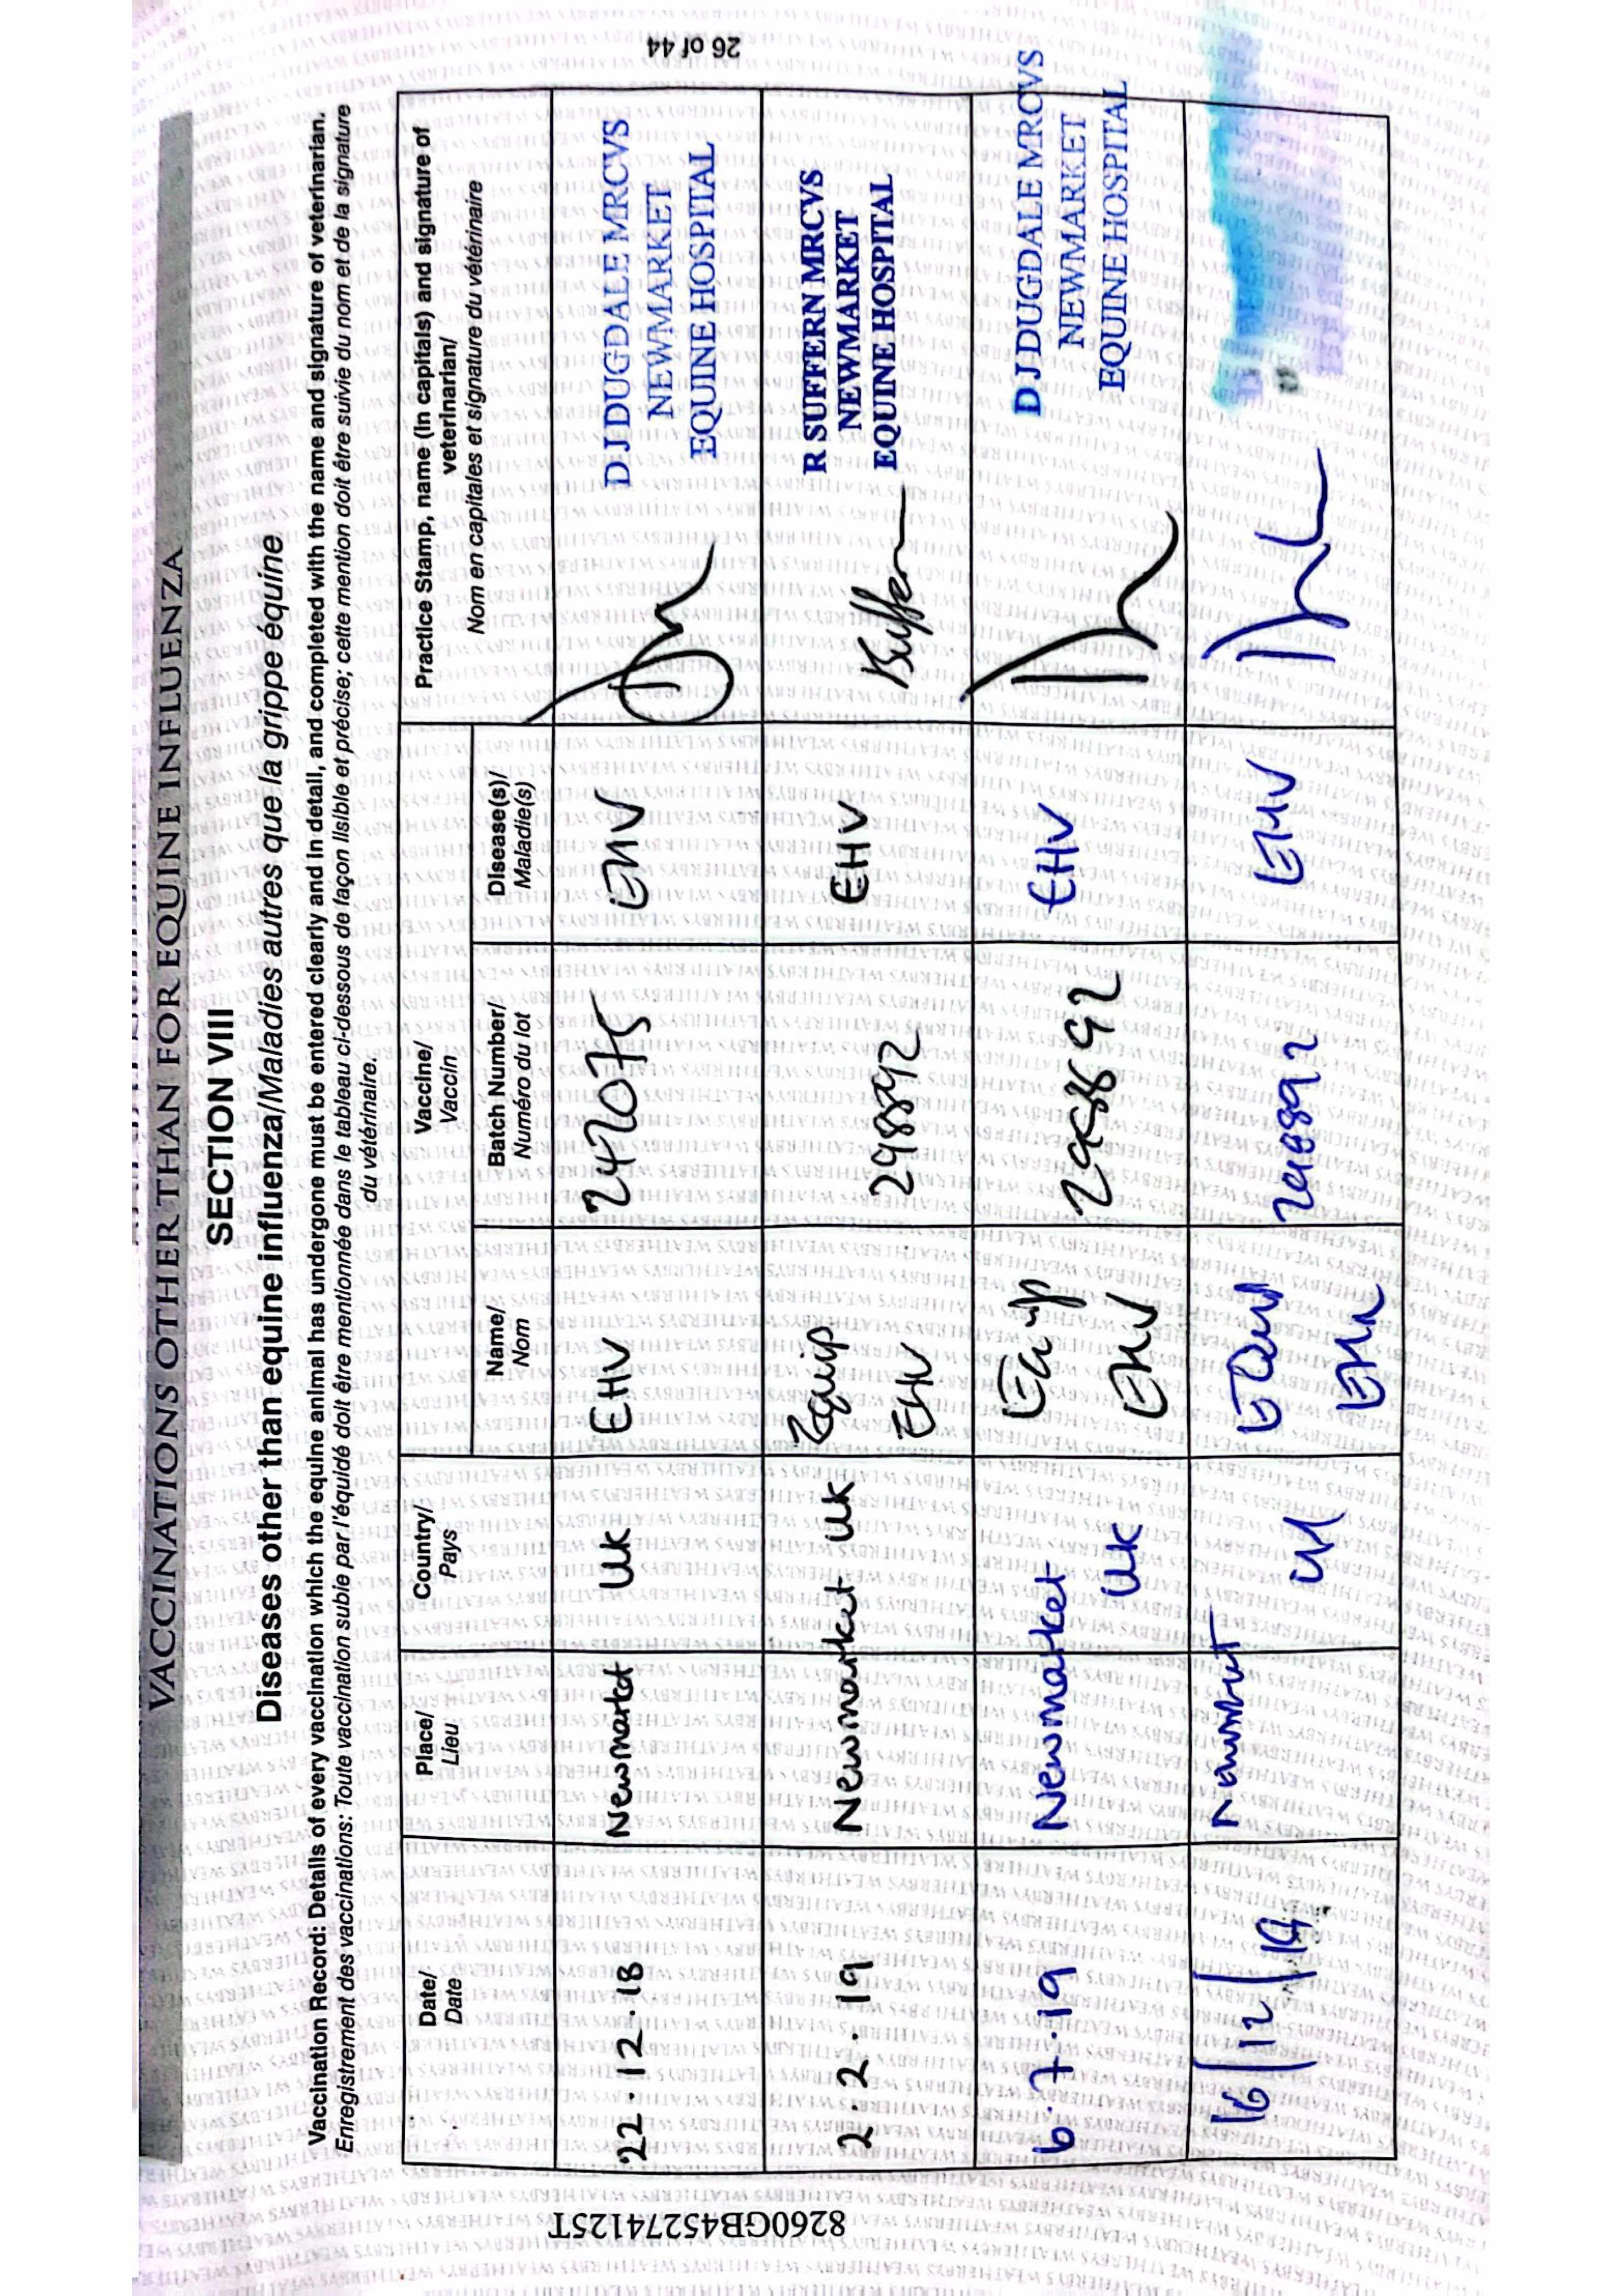 VACCINATIONS OTHER THAN FOR EQUINE INFLUENZA
SECTION VIII
Diseases other than equine influenza/Maladies autres que la grippe équine
Vaccination Record: Details of every vaccination which the equine animal has undergone must be entered clearly and in detail, and completed with the name and signature of veterinarian.
Enregistrement des vaccinations: Toute vaccination subie par l'équidé doit être mentionnée dans le tableau ci-dessous de façon lisible et précise; cette mention doit être suivie du nom et de la signature
du vétérinaire.
Date/
Date
Place/
Lieu
Country/
Pays
Vaccine/
Vaccin
Name/
Nom
Batch Number/
Numéro du lot
Disease(s)/
Maladie(s)
Practice Stamp, name (In capitals) and signature of
veterinarian/
Nom en capitales et signature du vétérinaire
22.12.18 Newmarket UK EHV 242075 EHV
D J DUGDALE MRCVS
NEWMARKET
EQUINE HOSPITAL
2.2.19 Newmarket UK Equip
EHV
298892 EHV
R SUFFERN MRCVS
NEWMARKET
EQUINE HOSPITAL
6.7.19 Newmarket
UK
Equip
EHV
298892 EHV
D J DUGDALE MRCVS
NEWMARKET
EQUINE HOSPITAL
16/12/19 Newmarket
UK
Equip
EHV
298892 EHV
8260GB45274125T
26 of 44